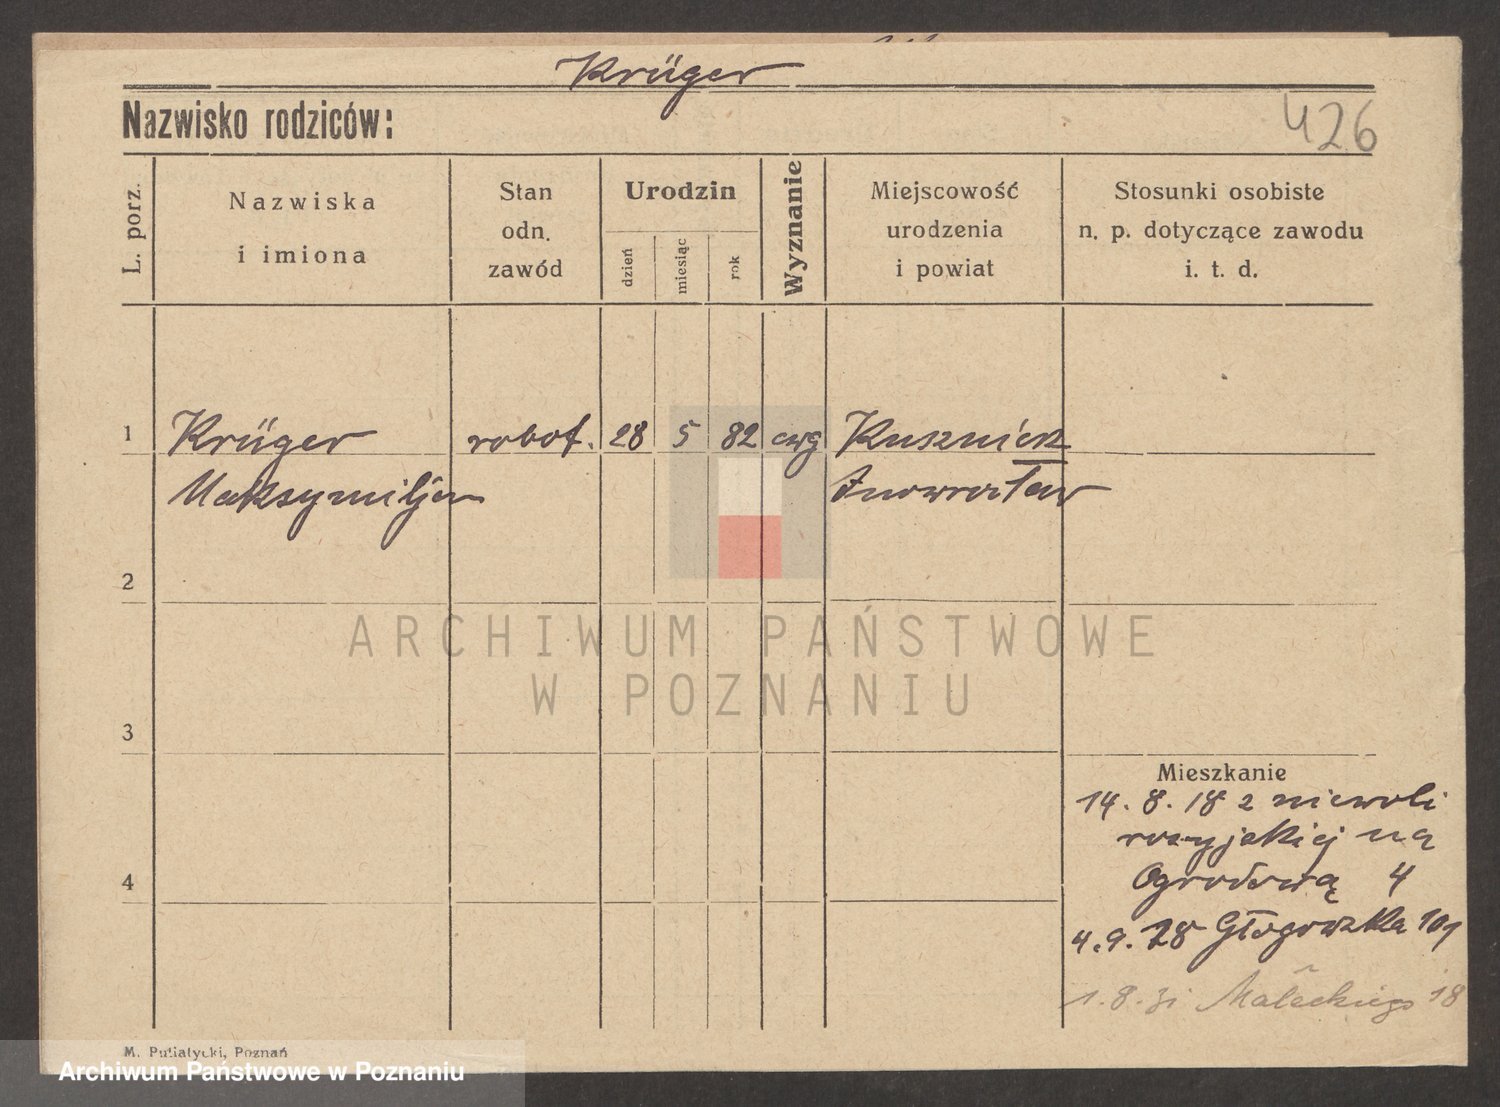 Krüger
Nazwisko rodziców:
426
L. porz.
Nazwiska
i imiona
Stan
odn.
zawód
Urodzin
dzień
miesiąc
rok
Wyznanie
Miejscowość
urodzenia
i powiat
Stosunki osobiste
n. p. dotyczące zawodu
i. t. d.
1 Krüger robot. 28 5 82 ewg
Maksymiljan Inowrocław
2
ARCHIWUM PAŃSTWOWE
W POZNANIU
3
Mieszkanie
14. 8. 18 z niewoli
rosyjskiej na
4 Ogrodową 4
4. 9. 28 Głogowska 101
1. 8. 31 Małeckiego 18
M. Putiatycki, Poznań
Archiwum Państwowe w Poznaniu